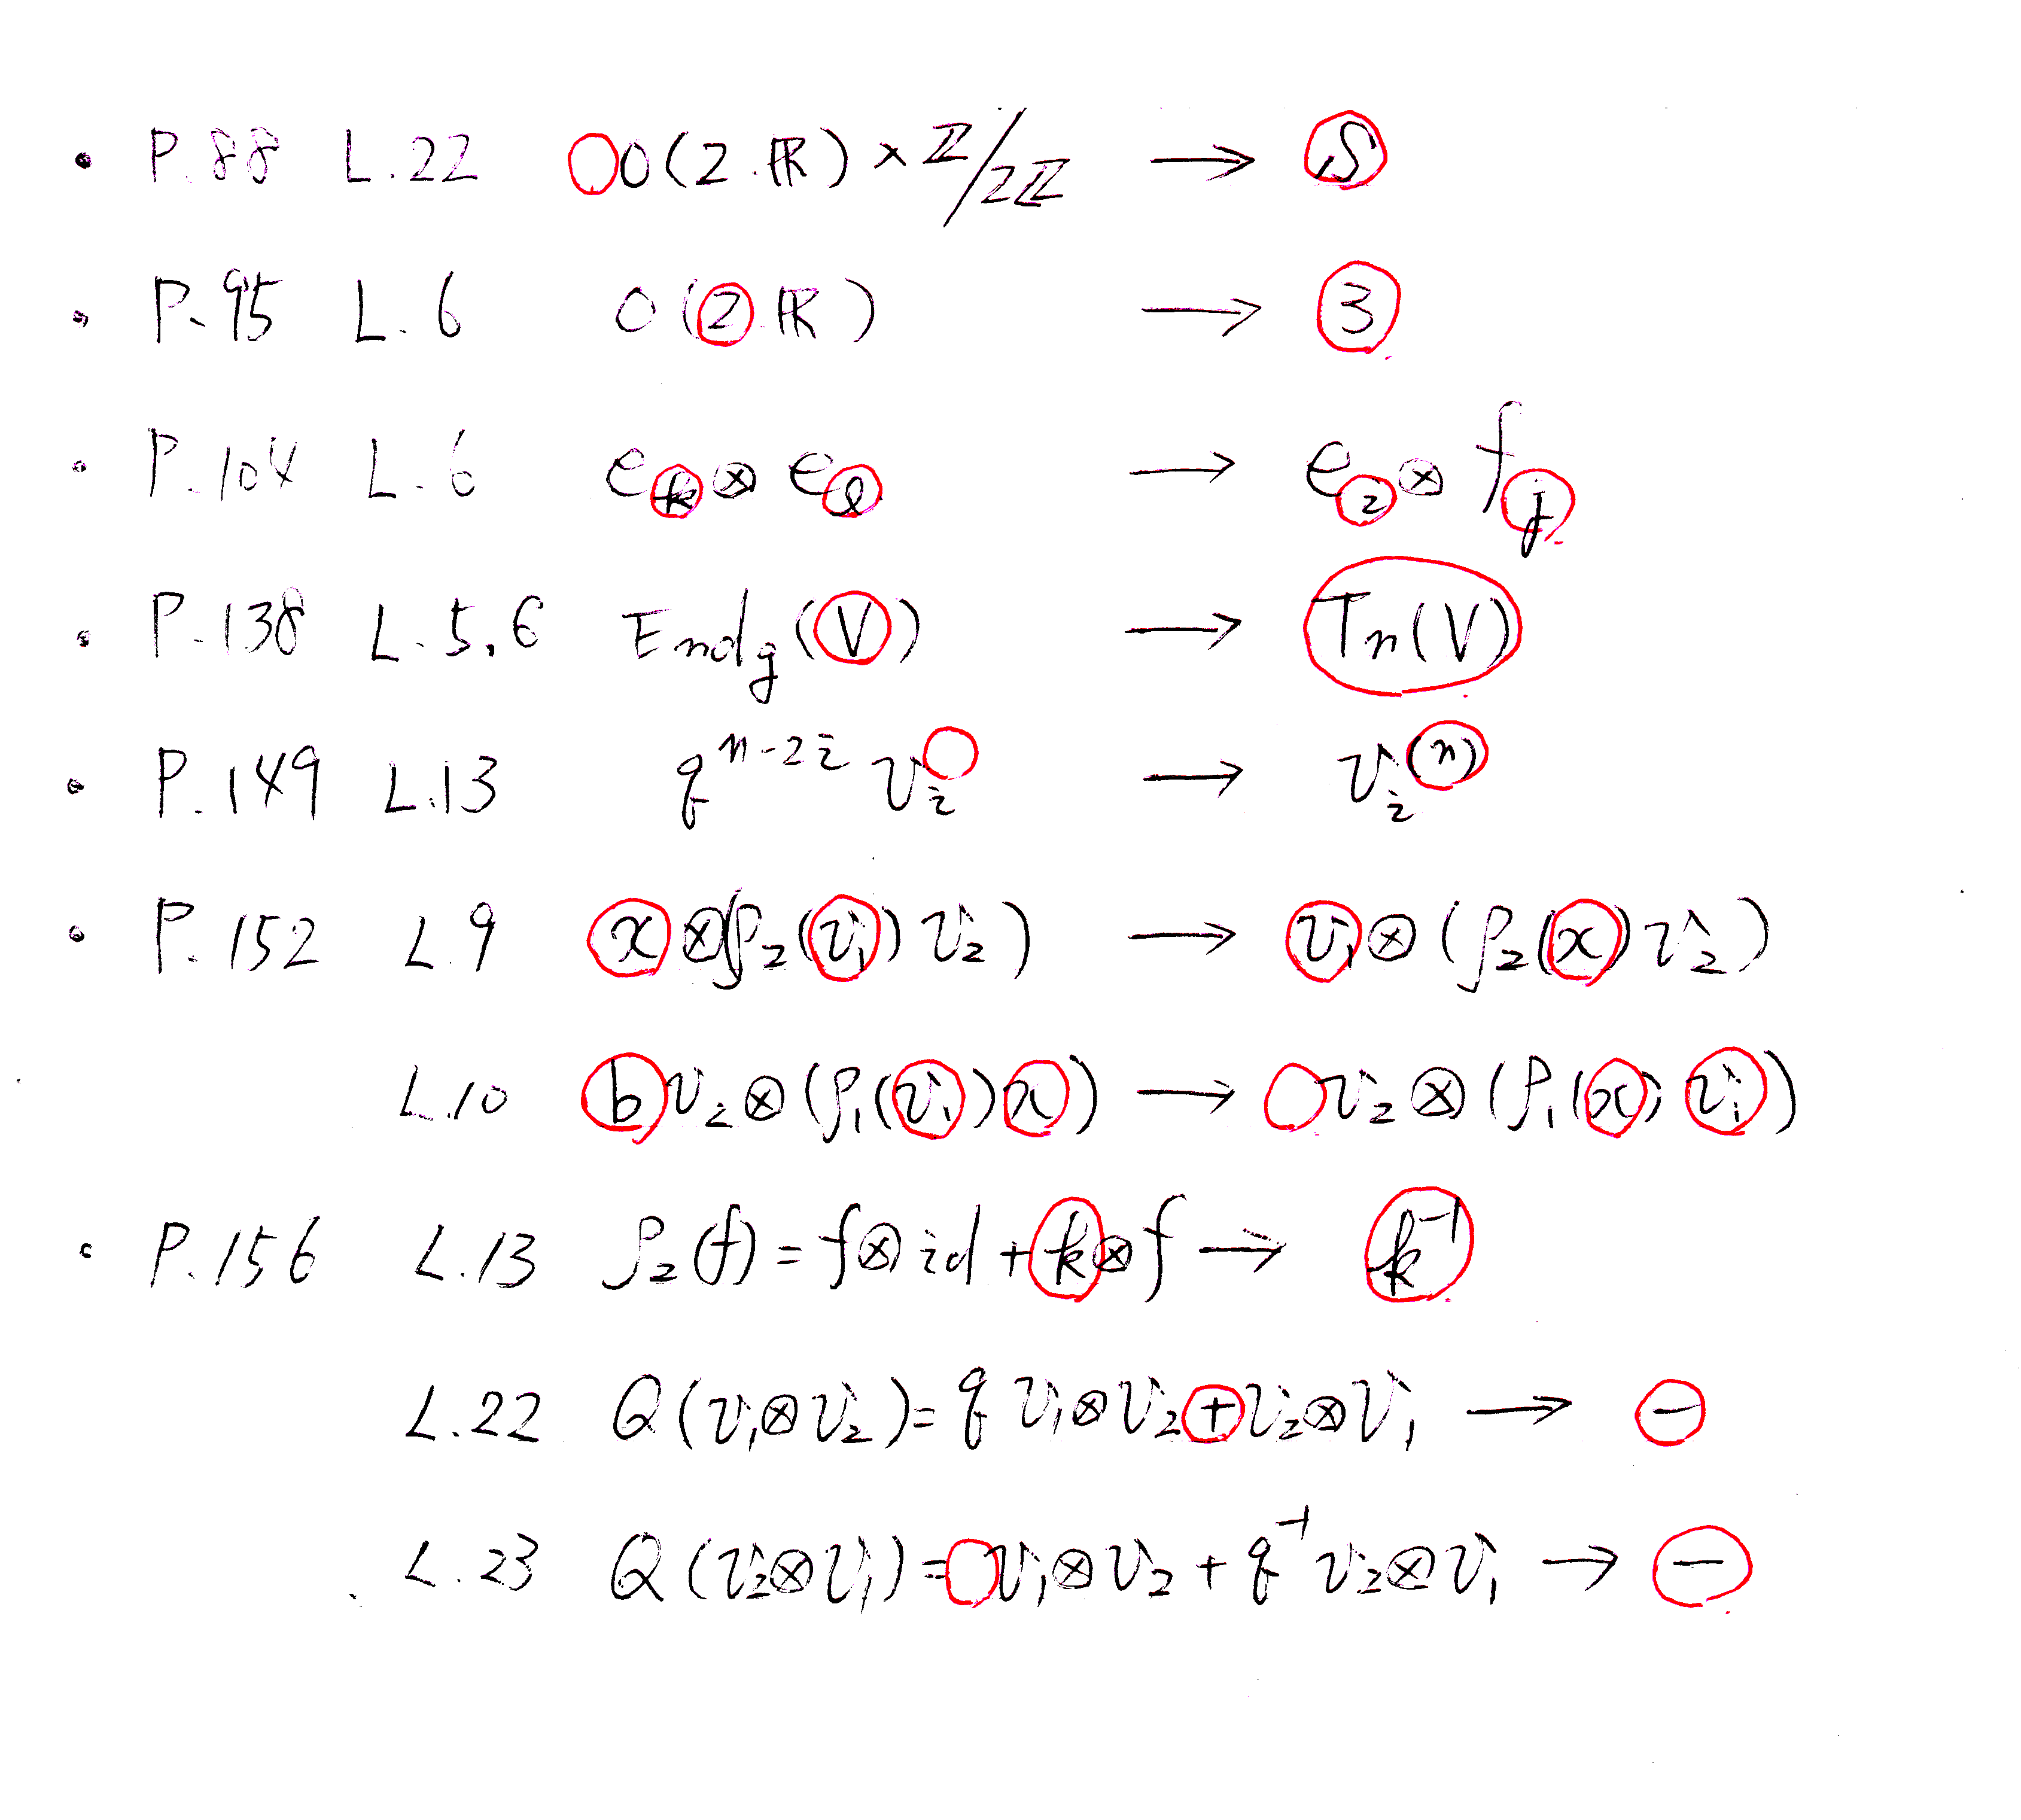 • P.88 L.22 ○O(2.ℝ)×ℤ/2ℤ → S
• P.95 L.6 O(2.ℝ) → 3
• P.104 L.6 e_k⊗e_ℓ → e_i⊗f_j
• P.138 L.5,6 End_g(V) → Tn(V)
• P.149 L.13 q^{n-2i} v_i^○ → v_i^{(n)}
• P.152 L.9 x⊗(ρ₂(v₁)v₂) → v₁⊗(ρ₂(x)v₂)
L.10 b v₂⊗(ρ₁(v₁)x) → ○v₂⊗(ρ₁(x)v₁)
• P.156 L.13 ρ₂(f)=f⊗id+k⊗f → k⁻¹
L.22 Q(v₁⊗v₂)=q v₁⊗v₂+v₂⊗v₁ → −
L.23 Q(v₂⊗v₁)=○v₁⊗v₂+q⁻¹v₂⊗v₁ → −